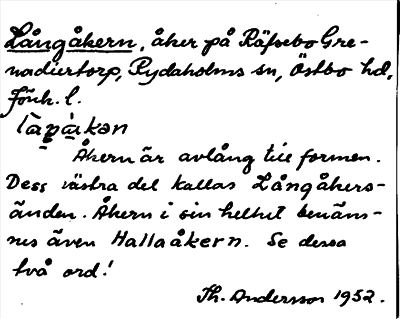 Långåkern, åker på Räfsebo Gre-
nadiertorp, Rydaholms sn, Östbo hd,
Jönk. l.
Åkern är avlång till formen.
Dess västra del kallas Långåkers-
änden. Åkern i sin helhet benäm-
nes även Hallaåkern. Se dessa
två ord!
Th. Andersson 1952.